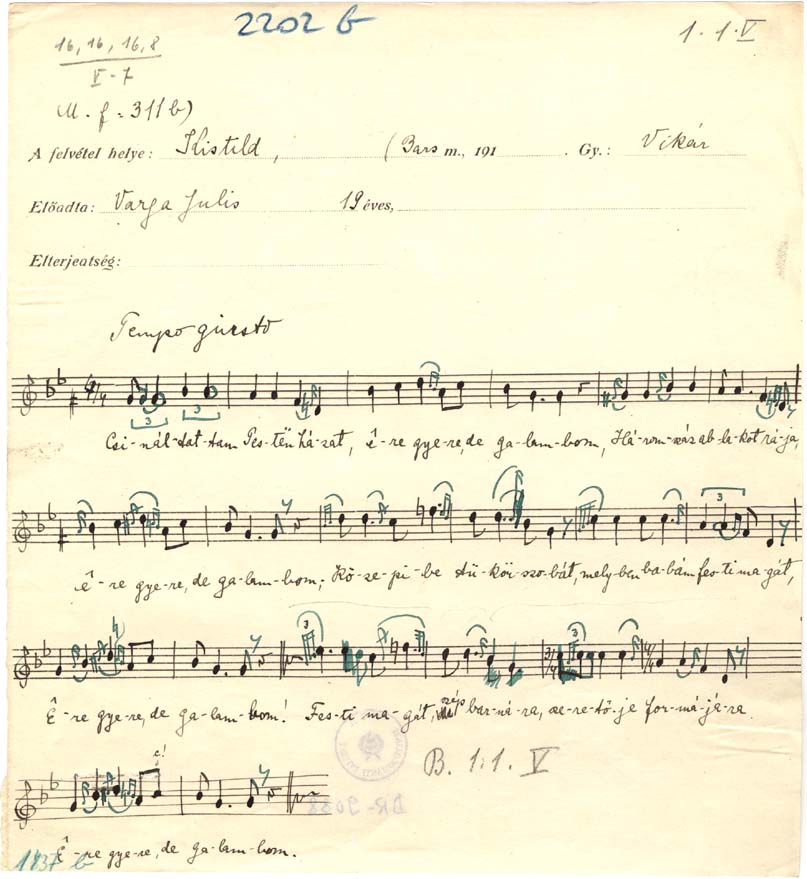 2202 b
1. 1. V
16, 16, 16, 8
V - 7
M. f. 311 b)
A felvétel helye: Kistild, (Bars m., 191 . Gy.: Vikár
Előadta: Varga Julis 19 éves,
Elterjedtség:
Tempo giusto
Csi-nál-tat-tam Pes-tën há-zat, ê-re gye-re, de ga-lam-bom, Há-rom-száz ab-la-kot rá-ja,
ê-re gye-re, de ga-lam-bom; Kö-ze-pi-be tü-kör szo-bát, mely-ben ba-bám fes-ti ma-gát,
Ê-re gye-re, de ga-lam-bom! Fes-ti ma-gát, szép bar-ná-ra, sze-re-tö-je for-má-já-ra.
B. 1. 1. V
Ê-re gye-re, de ga-lam-bom.
1437 b